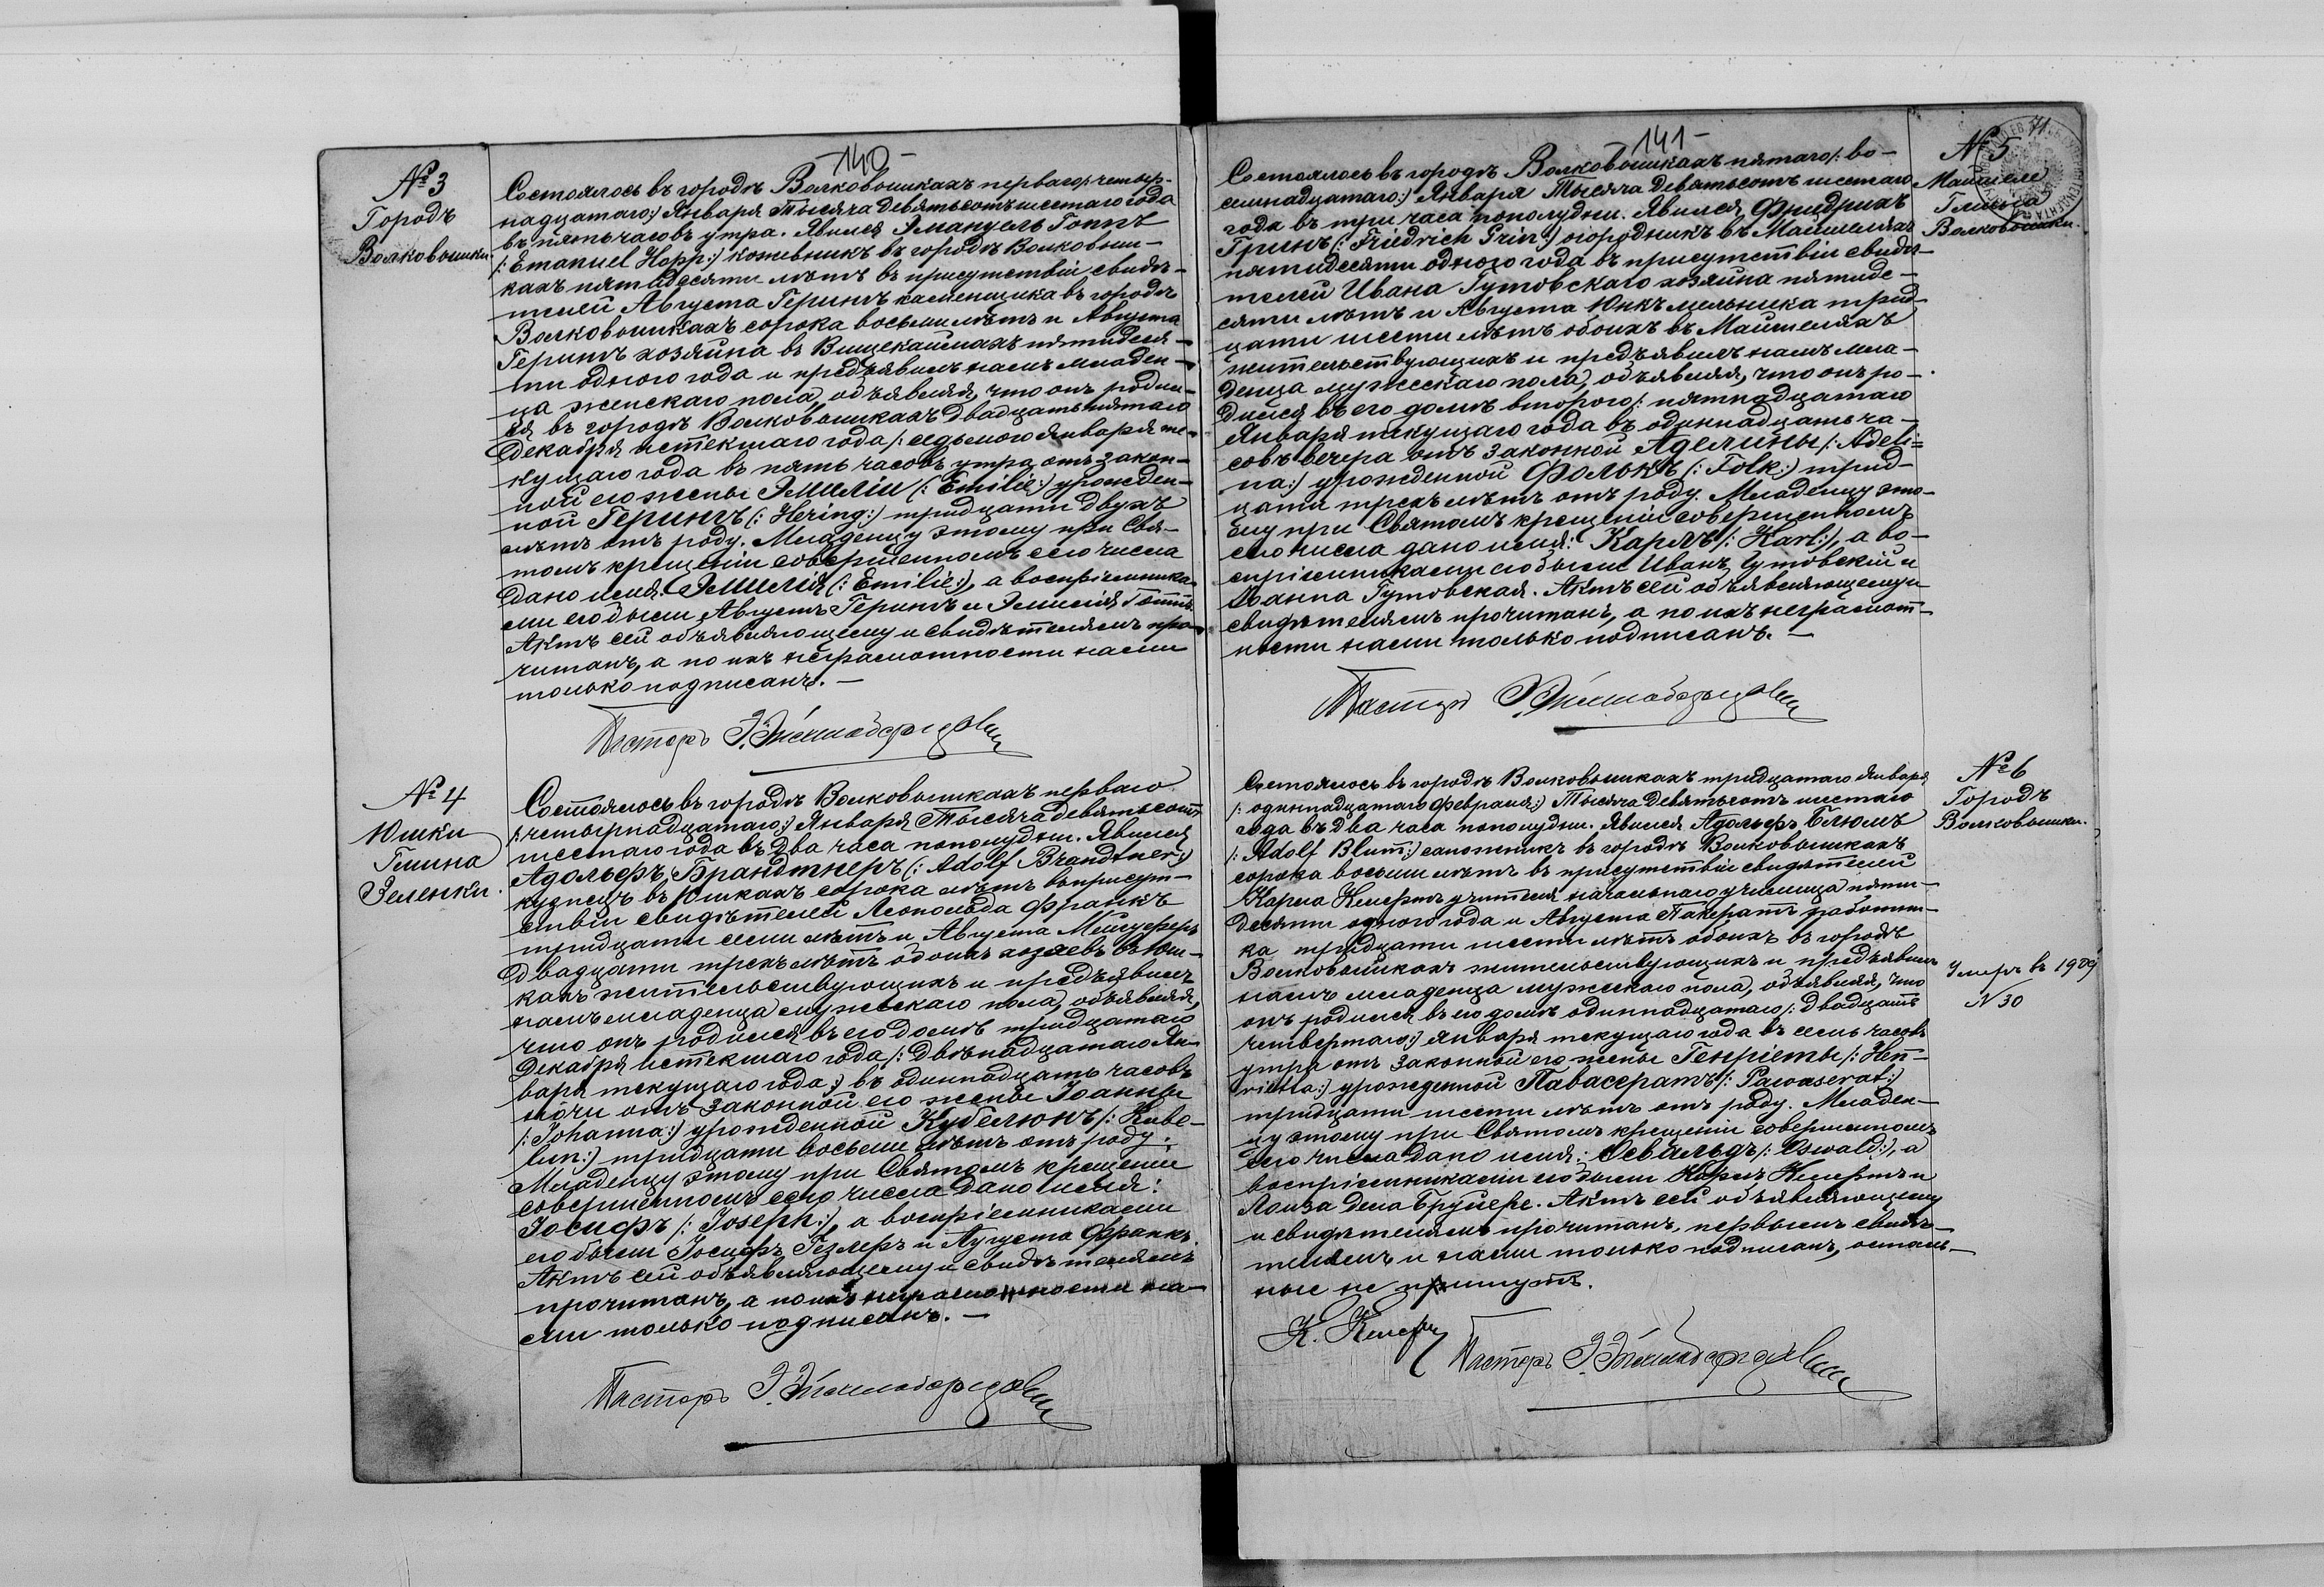 -140-
№ 3
Городъ
Волковышки
Состоялось въ городѣ Волковышкахъ перваго /: четыр-
надцатаго:/ Января Тысяча девятьсотъ шестаго года
въ пять часовъ утра. Явился Эмануель Гоппъ
/: Emanuel Hopp:/ кожевникъ въ городѣ Волковыш-
кахъ пятидесяти лѣтъ въ присутствіи свидѣ-
телей Августа Герингъ каменщика въ городѣ
Волковышкахъ сорока восьми лѣтъ и Августа
Герингъ хозяина въ пятидеся-
ти одного года и предъявилъ намъ младен-
ца женскаго пола, объявляя, что онъ родил-
ся въ городѣ Волковышкахъ двадцать пятаго
Декабря истекшаго года /: седьмого Января те-
кущаго года въ пять часовъ утра отъ закон-
ной его жены Эмиліи (: Emilie:) урожден-
ной Герингъ (: Hering:) тридцати двухъ
лѣтъ отъ роду. Младенцу этому при Свя-
томъ крещеніи совершенномъ сего числа
дано имя Эмилія (: Emilie:), а воспріемника-
ми его были Августъ Герингъ и Эмилія Гоппъ.
Актъ сей объявляющему и свидѣтелямъ про-
читанъ, а по ихъ неграмотности нами
только подписанъ. —
Пасторъ
№ 4
Юшки
Гмина
Зеленки.
Состоялось въ городѣ Волковышкахъ перваго
/: четырнадцатаго:/ Января Тысяча девятьсотъ
шестаго года въ два часа пополудни. Явился
Адольфъ Брандтнеръ (: Adolf Brandtner:)
кузнецъ въ Юшкахъ сорока лѣтъ въ присут-
ствіи свидѣтелей Леопольда Франкъ
тридцати семи лѣтъ и Августа
двадцати трехъ лѣтъ обоихъ хозяевъ въ Юш-
кахъ жительствующихъ и предъявилъ
намъ младенца мужескаго пола, объявляя,
что онъ родился въ его домѣ тридцатаго
Декабря истекшаго года /: двѣнадцатаго Ян-
варя текущаго года:/ въ одиннадцать часовъ
ночи отъ законной его жены Іоанны
/: Johanna:/ урожденной Кубелюнъ /: Kube-
lun:/ тридцати восьми лѣтъ отъ роду.
Младенцу этому при Святомъ крещеніи
совершенномъ сего числа дано имя:
Іосифъ /: Joseph:/, а воспріемниками
его были Іосифъ Гезлеръ и Августа Франкъ.
Актъ сей объявляющему и свидѣтелямъ
прочитанъ, а по ихъ неграмотности на-
ми только подписанъ. —
Пасторъ
-141-
71
№ 5
Гмина
Волковышки.
Состоялось въ городѣ Волковышкахъ пятаго /: во-
семнадцатаго:/ Января Тысяча девятьсотъ шестаго
года въ три часа пополудни. Явился Фридрихъ
Гринъ (: Friedrich Grin:) огородникъ въ Майшеляхъ
пятидесяти одного года въ присутствіи свидѣ-
телей Ивана Гутовскаго хозяина пятиде-
сяти лѣтъ и Августа Юнкъ мельника трид-
цати шести лѣтъ обоихъ въ Майшеляхъ
жительствующихъ и предъявилъ намъ мла-
денца мужескаго пола, объявляя, что онъ ро-
дился въ его домѣ втораго /: пятнадцатаго
Января текущаго года въ одиннадцать ча-
совъ вечера отъ законной Аделины /: Adeli=
na:/ урожденной Фолькъ (: Folk:) трид-
цати трехъ лѣтъ отъ роду. Младенцу это-
му при Святомъ крещеніи совершенномъ
сего числа дано имя: Карлъ /: Karl:/, а во-
спріемниками его были Иванъ Гутовскій и
Іоанна Гутовская. Актъ сей объявляющему и
свидѣтелямъ прочитанъ, а по ихъ неграмот-
ности нами только подписанъ. —
Пасторъ
№ 6
Городъ
Волковышки.
Состоялось въ городѣ Волковышкахъ тридцатаго Января
/: одиннадцатаго Февраля:/ Тысяча девятьсотъ шестаго
года въ два часа пополудни. Явился Адольфъ Блюмъ
/: Adolf Blum:/ сапожникъ въ городѣ Волковышкахъ
сорока восьми лѣтъ въ присутствіи свидѣтелей
Карла Клемертъ учителя начальнаго училища пяти-
десяти одного года и Августа Пакератъ работни-
ка тридцати шести лѣтъ обоихъ въ городѣ
Волковышкахъ жительствующихъ и предъявилъ
намъ младенца мужескаго пола, объявляя, что
онъ родился въ его домѣ одиннадцатаго /: двадцать
четвертаго:/ Января текущаго года въ семь часовъ
утра отъ законной его жены Генріеты /: Hen-
rietta:/ урожденной Павасератъ /: Pawaserat:/
тридцати шести лѣтъ отъ роду. Младен-
цу этому при Святомъ крещеніи совершенномъ
сего числа дано имя: Освальдъ /: Oswald:/, а
воспріемниками его были Карлъ и
Лоиза Дела Бруйере. Актъ сей объявляющему
и свидѣтелямъ прочитанъ, первымъ свидѣ-
телемъ и нами только подписанъ, осталь-
ные не пишутъ.
Умеръ въ 1909
N 30
Пасторъ